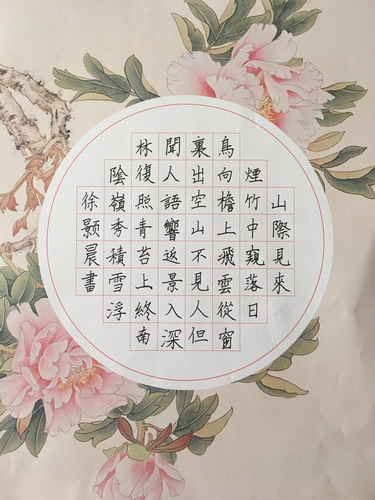 山際見來
煙竹中窺落日
鳥向檐上飛雲從窗
裏出空山不見人但
聞人語響返景入深
林復照青苔上終南
陰嶺秀積雪浮
徐颢晨書